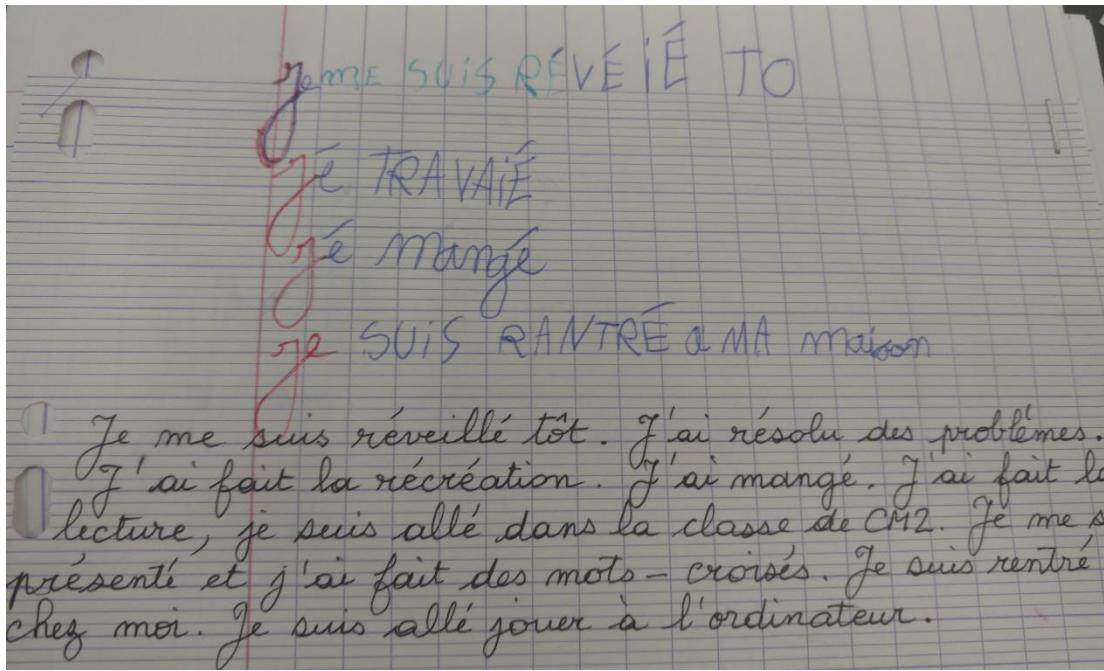 je ME SUiS RÉVÉiÉ TO
jé TRAVAiÉ
jé mangé
je SUiS RANTRÉ a MA maison
Je me suis réveillé tôt. J'ai résolu des problèmes.
J'ai fait la récréation. J'ai mangé. J'ai fait la
lecture, je suis allé dans la classe de CM2. Je me s
présenté et j'ai fait des mots-croisés. Je suis rentré
chez moi. Je suis allé jouer à l'ordinateur.